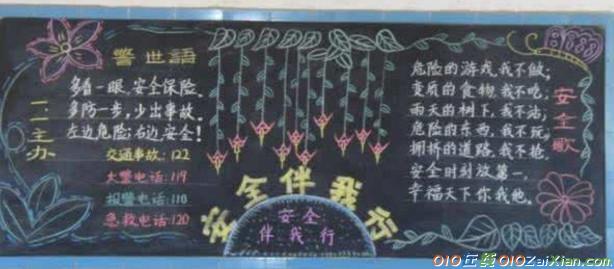 警世語
多看一眼、安全保险。
多防一步，少出事故。
左边危险；右边安全！
交通事故：122
火警电话：119
报警电话：110
急救电话：120
一一主办
安全伴我行
安全
伴我行
危险的游戏，我不做；
变质的食物，我不吃；
雨天的树下，我不站；
危险的东西，我不玩；
拥挤的道路，我不抢。
安全时刻放第一，
幸福天下你我他。
安全歌
010在线 010ZaiXian.com